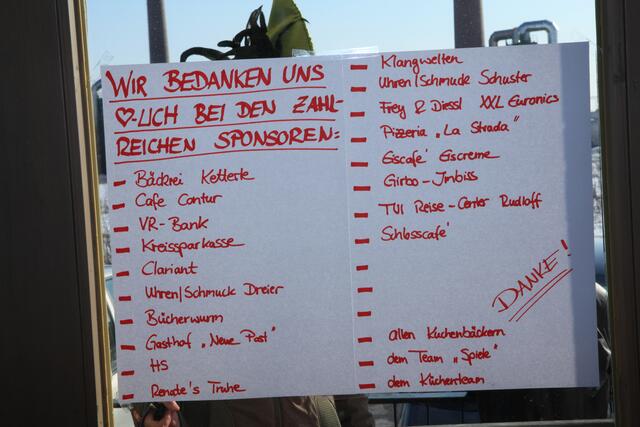 WIR BEDANKEN UNS
♡-LICH BEI DEN ZAHL-
REICHEN SPONSOREN:
- Bäckrei Ketterle
- Cafe Contur
- VR-Bank
- Kreissparkasse
- Clariant
- Uhren/Schmuck Dreier
- Bücherwurm
- Gasthof „Neue Post"
- HS
- Renate's Truhe
- Klangwelten
- Uhren/Schmuck Schuster
- Frey & Diessl XXL Euronics
- Pizzeria „La Strada"
- Eiscafé Eiscreme
- Girbo-Imbiss
- TUI Reise-Center Rudloff
- Schlosscafé
-
-
-
DANKE!
- allen Kuchenbäckern
- dem Team „Spiele"
- dem Küchenteam